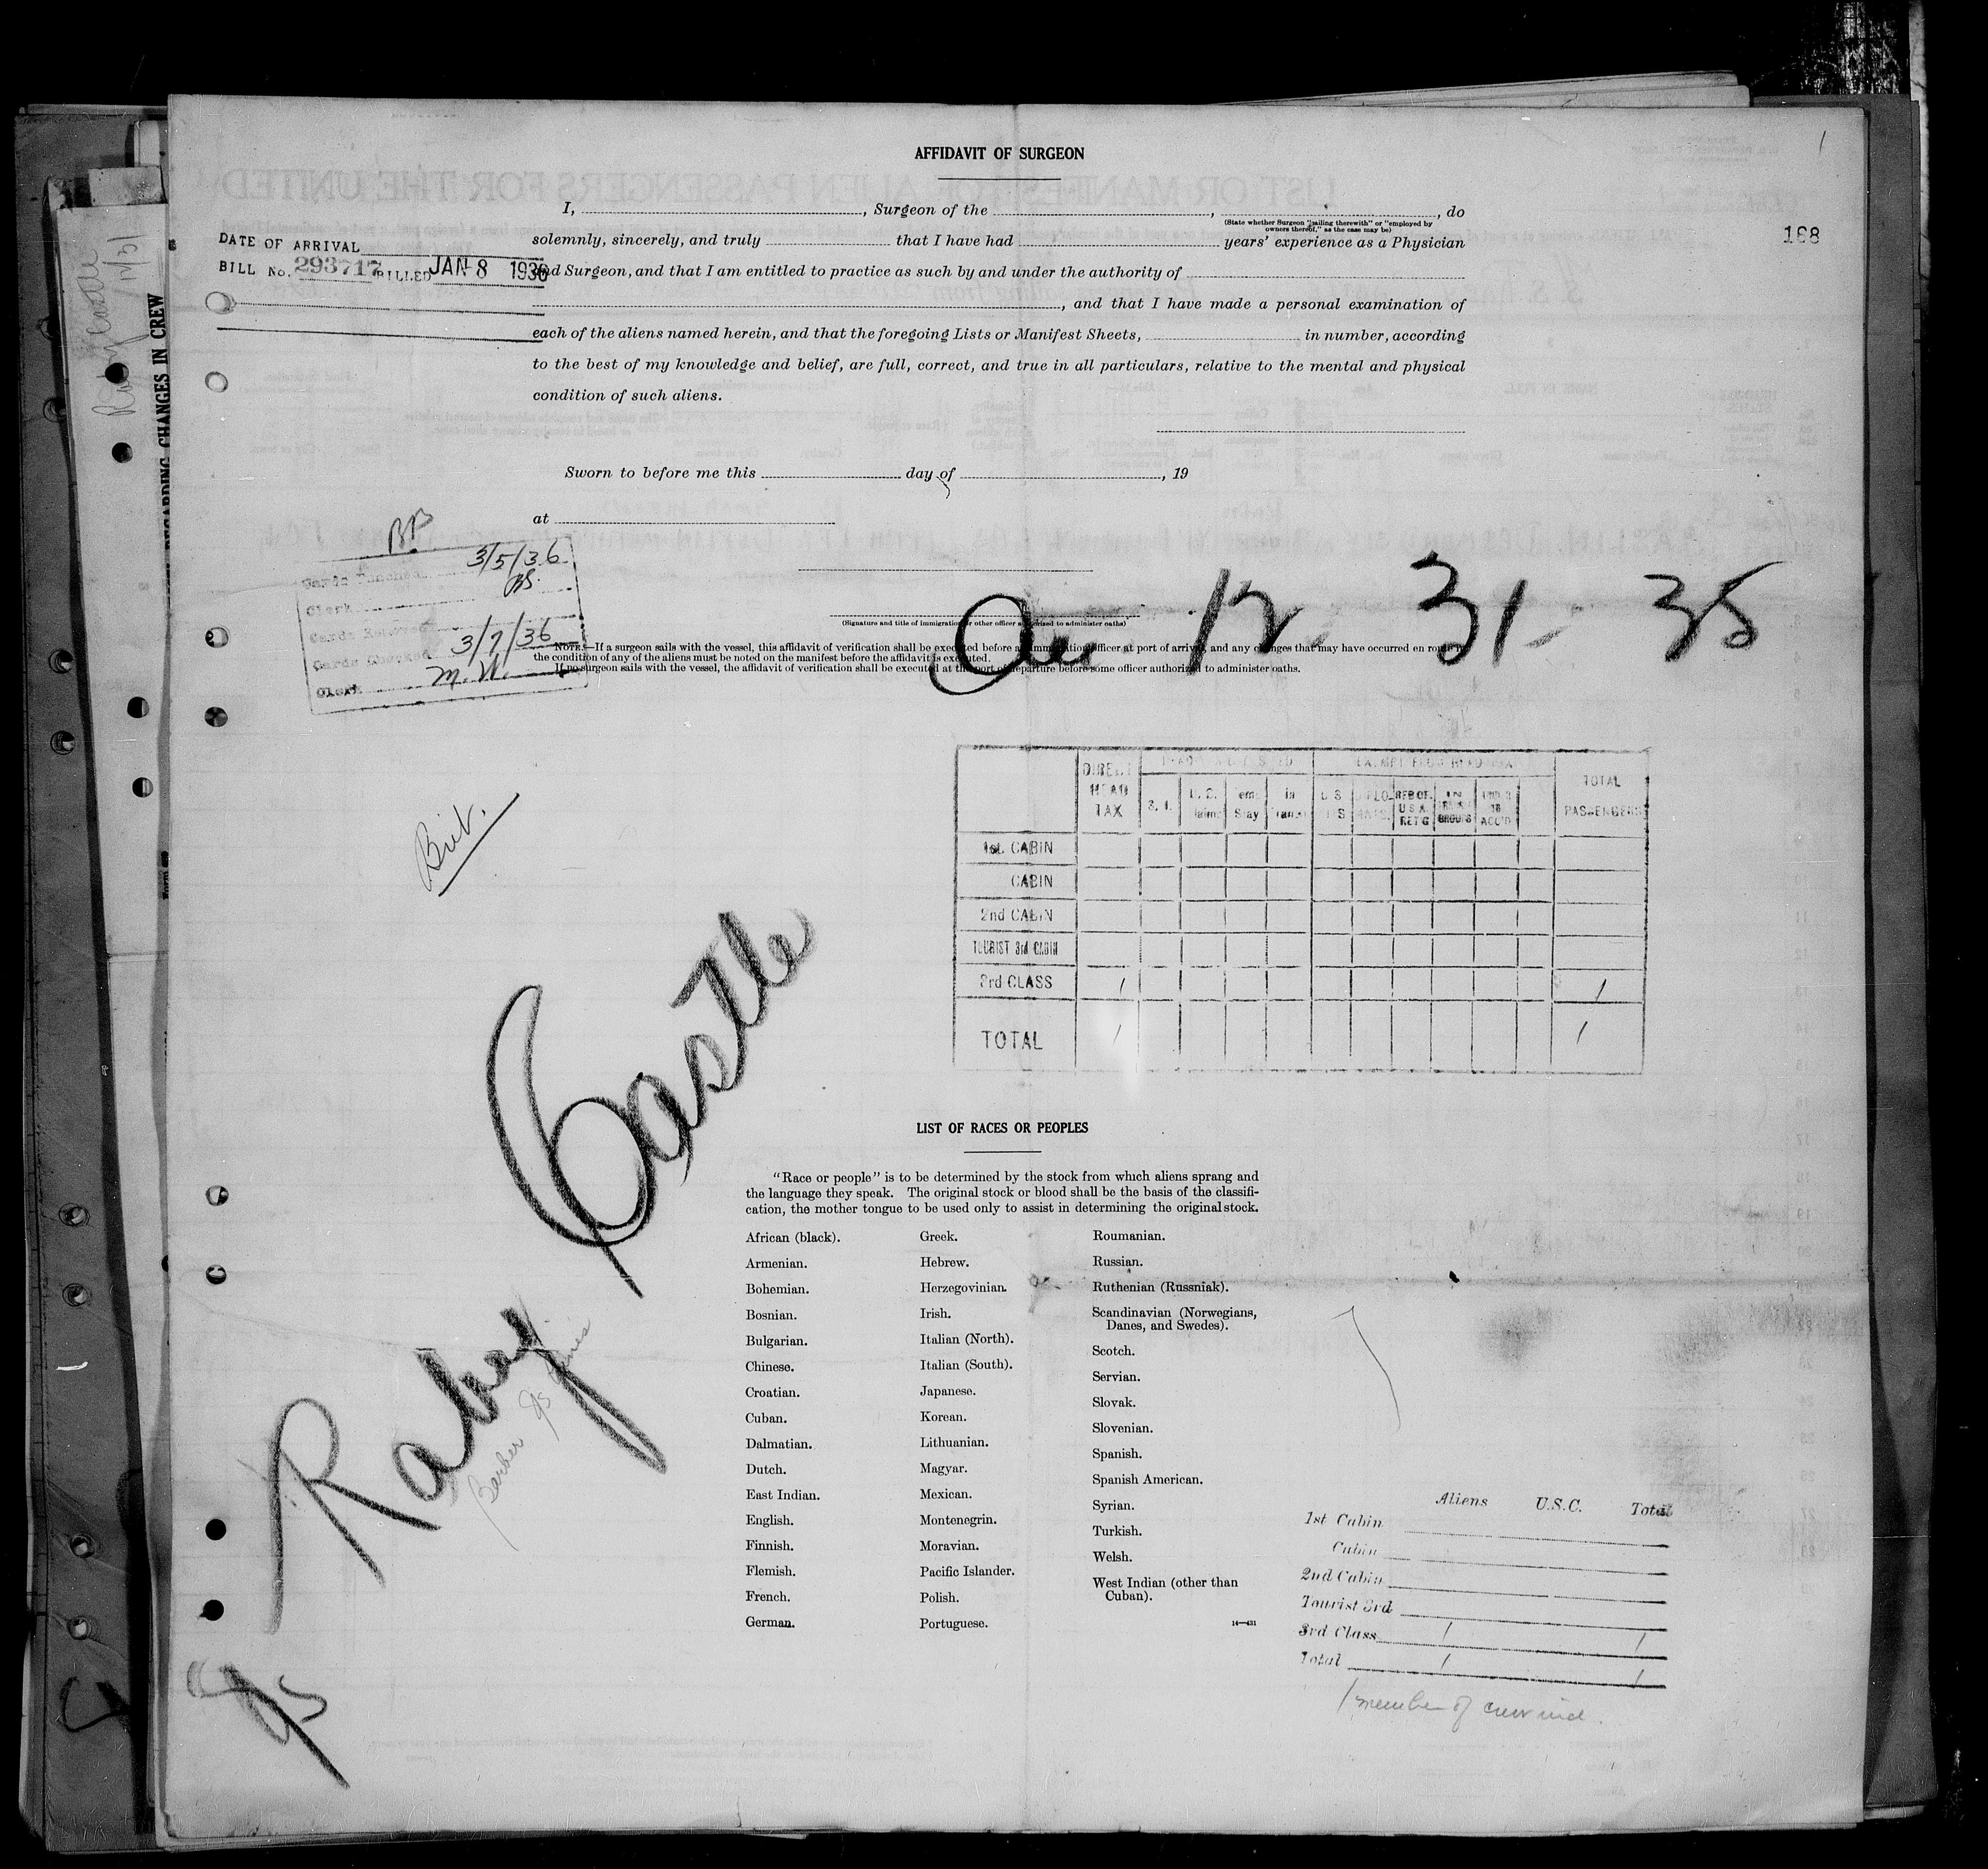 AFFIDAVIT OF SURGEON
1
I, , Surgeon of the , , do
(State whether Surgeon "sailing therewith" or "employed by
owners thereof," as the case may be)
168
DATE OF ARRIVAL
solemnly, sincerely, and truly that I have had years' experience as a Physician
BILL No. 293717 BILLED JAN 8 1936
and Surgeon, and that I am entitled to practice as such by and under the authority of
, and that I have made a personal examination of
each of the aliens named herein, and that the foregoing Lists or Manifest Sheets, in number, according
to the best of my knowledge and belief, are full, correct, and true in all particulars, relative to the mental and physical
condition of such aliens.
Sworn to before me this day of , 19
at
3/5/36
Cards Punched
Clerk
Cards
3/7/36
Cards Checked
Clerk M.W.
12 31 35
(Signature and title of immigration or other officer authorized to administer oaths)
NOTE.—If a surgeon sails with the vessel, this affidavit of verification shall be executed before an immigration officer at port of arrival, and any changes that may have occurred en route in
the condition of any of the aliens must be noted on the manifest before the affidavit is executed.
If no surgeon sails with the vessel, the affidavit of verification shall be executed at the port of departure before some officer authorized to administer oaths.
REGARDING CHANGES IN CREW
Raby Castle
12/31
Brit.
DIRECT HEAD TAX
S. I.
U.S. ITS
REP OF. U S A. RET'G
GROUPS
UNDER 16 ACC'D
TOTAL PASSENGERS
1st. CABIN
CABIN
2nd CABIN
TOURIST 3rd CABIN
3rd CLASS 1 1
TOTAL 1 1
Raby Castle
Barber
LIST OF RACES OR PEOPLES
"Race or people" is to be determined by the stock from which aliens sprang and
the language they speak. The original stock or blood shall be the basis of the classifi-
cation, the mother tongue to be used only to assist in determining the original stock.
African (black).
Armenian.
Bohemian.
Bosnian.
Bulgarian.
Chinese.
Croatian.
Cuban.
Dalmatian.
Dutch.
East Indian.
English.
Finnish.
Flemish.
French.
German.
Greek.
Hebrew.
Herzegovinian.
Irish.
Italian (North).
Italian (South).
Japanese.
Korean.
Lithuanian.
Magyar.
Mexican.
Montenegrin.
Moravian.
Pacific Islander.
Polish.
Portuguese.
Roumanian.
Russian.
Ruthenian (Russniak).
Scandinavian (Norwegians,
Danes, and Swedes).
Scotch.
Servian.
Slovak.
Slovenian.
Spanish.
Spanish American.
Syrian.
Turkish.
Welsh.
West Indian (other than
Cuban).
14—431
Aliens U.S.C. Total
1st Cabin
Cabin
2nd Cabin
Tourist 3rd
3rd Class 1 1
Total 1 1
1 member of crew incl.